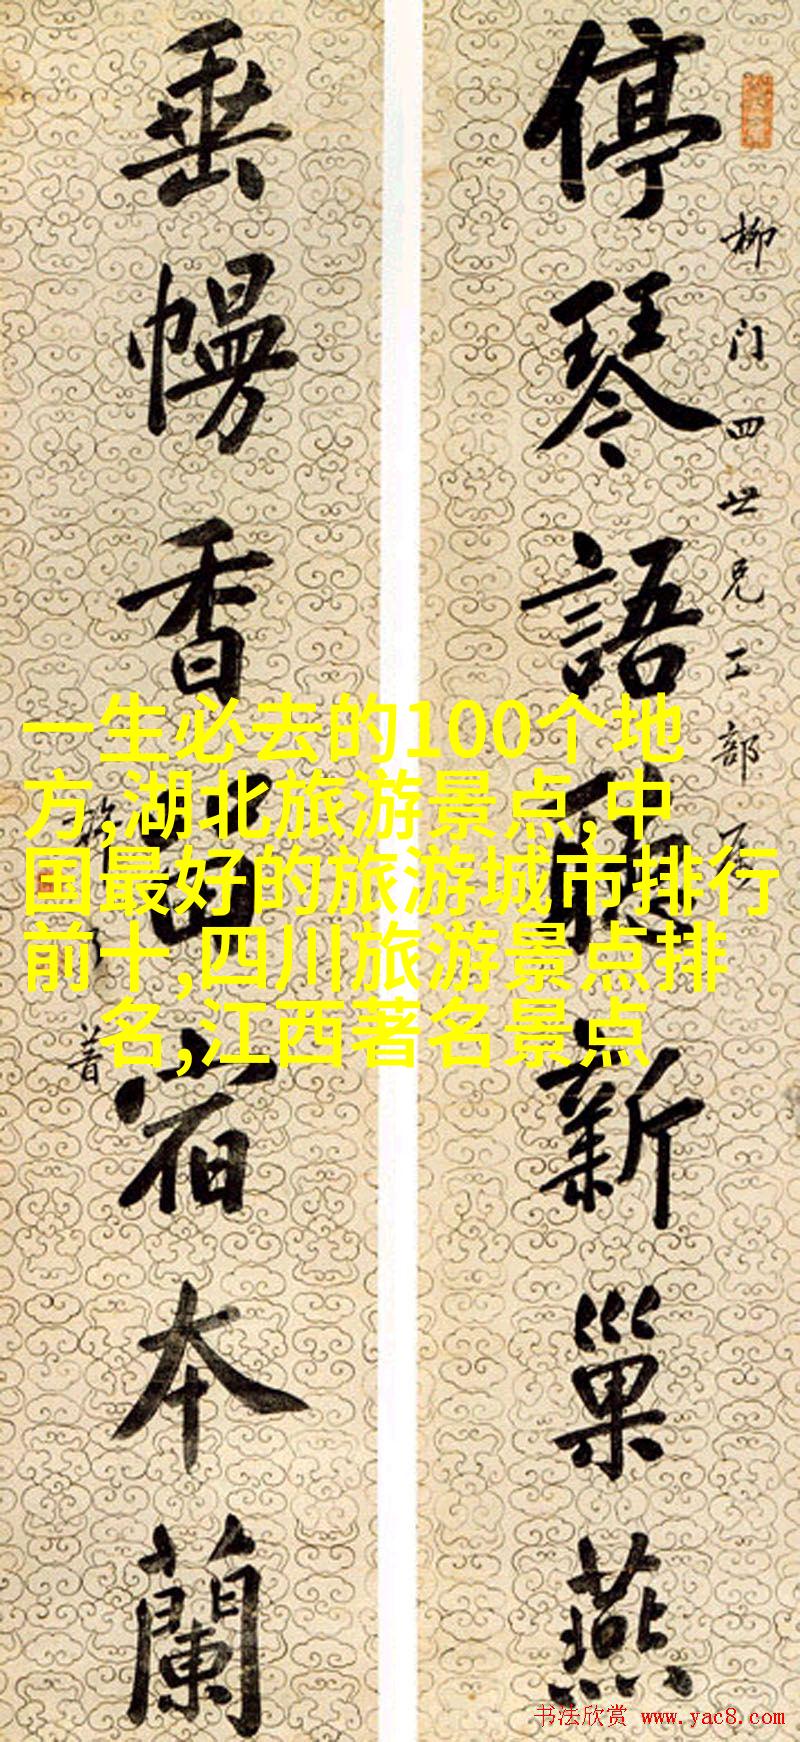 停琴語聽新巢燕
柳门四世兄工部
垂幔香留宿本蘭
一生必去的100个地
方,湖北旅游景点,中
国最好的旅游城市排行
前十,四川旅游景点排
名,江西著名景点
书法欣赏 www.yac8.com